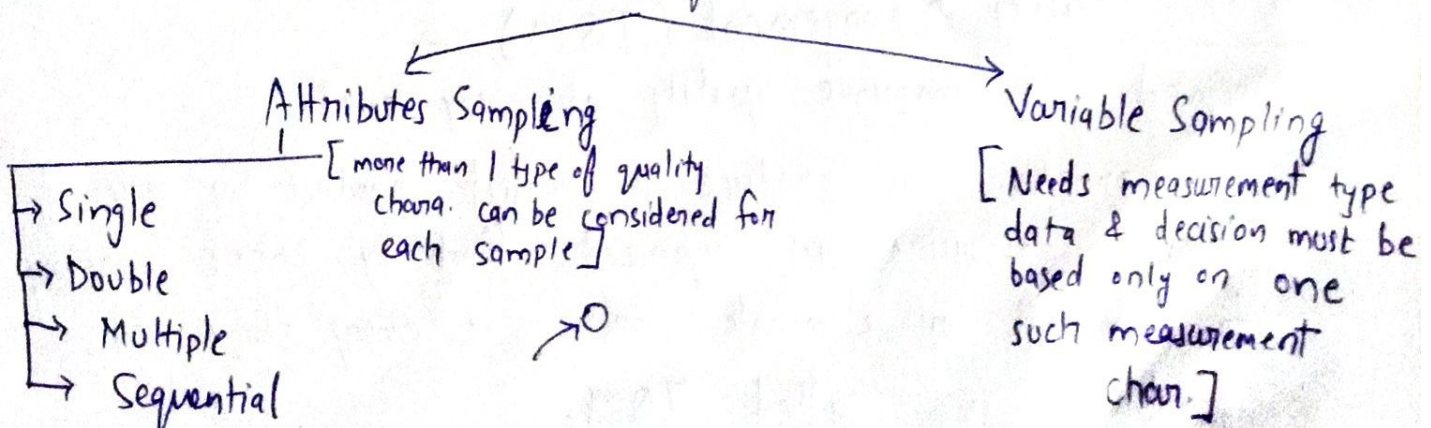 Attributes Sampling
[ more than 1 type of quality
chara. can be considered for
each sample ]
→ Single
→ Double
→ Multiple
→ Sequential
Variable Sampling
[ Needs measurement type
data & decision must be
based only on one
such measurement
char. ]